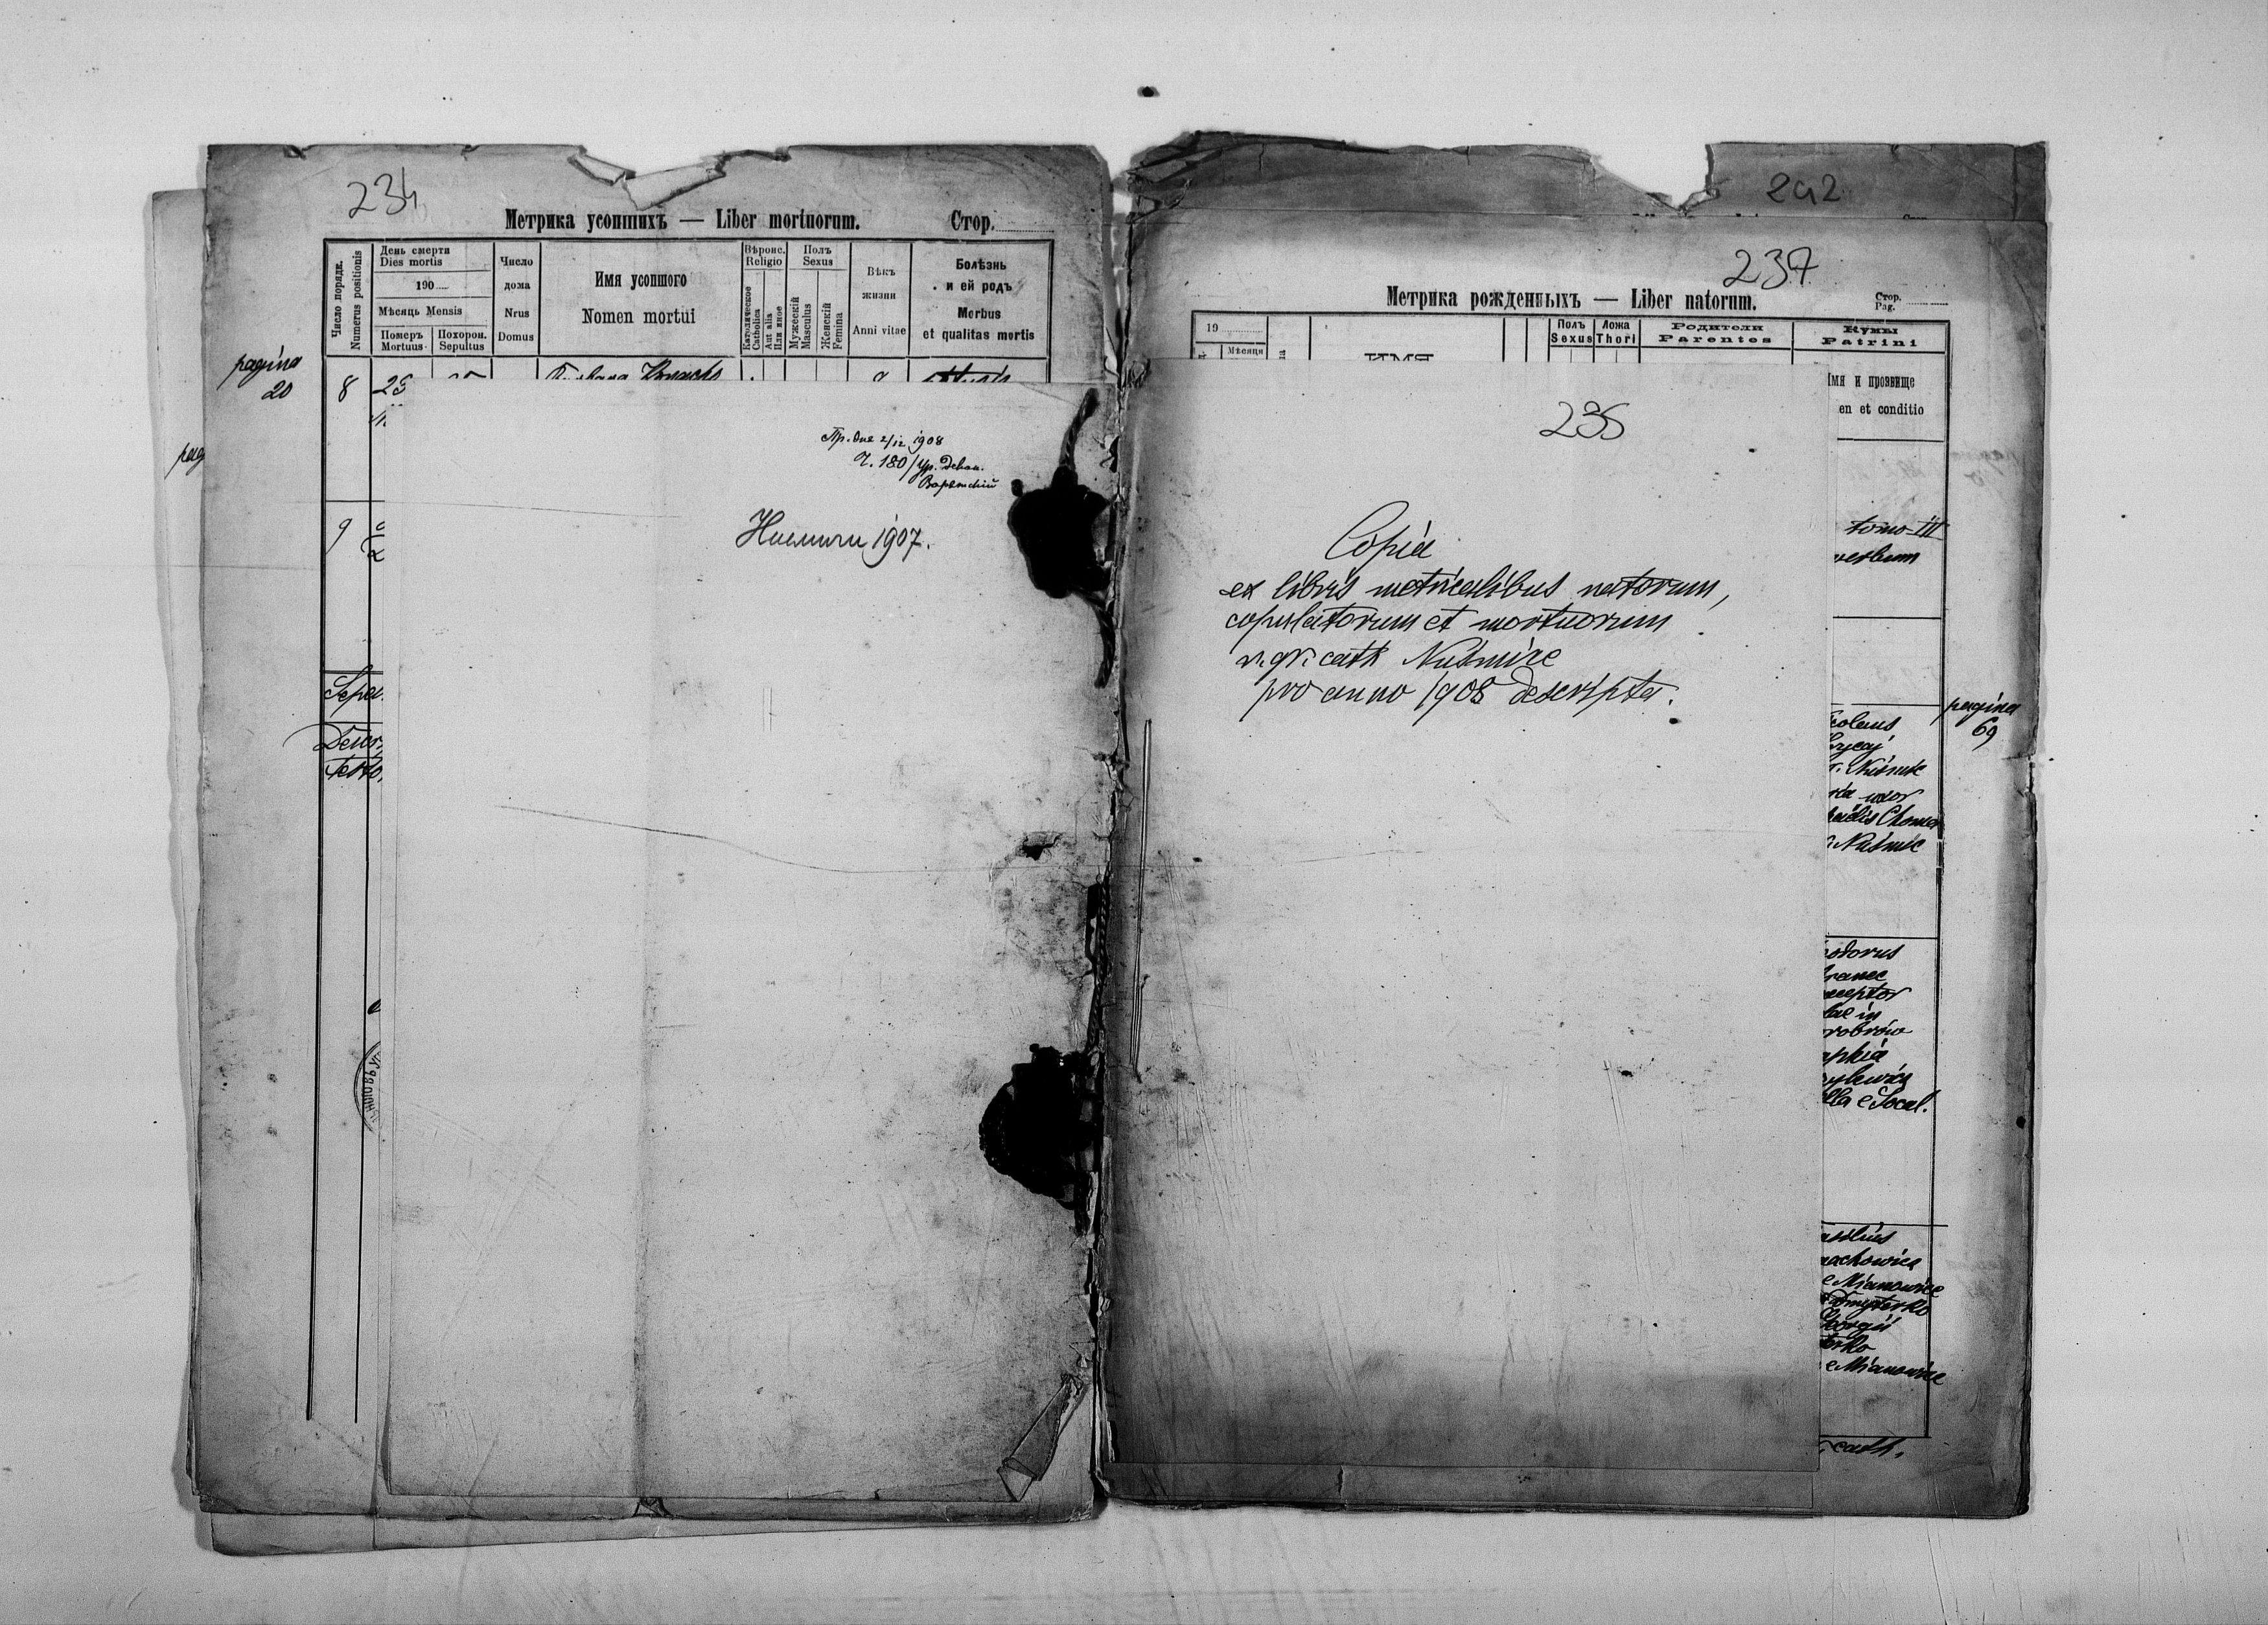 234
Метрика усопшихъ — Liber mortuorum. Стор.
Число порядк.
Numerus positionis
День смерти
Dies mortis
190
Мѣсяць Mensis
Померъ
Mortuus
Похорон.
Sepultus
Число
дома
Nrus
Domus
Имя усопшого
Nomen mortui
Вѣроис.
Religio
Католическое
Catholica
Aut alia
Или иное
Полъ
Sexus
Мужескій
Masculus
Женскій
Femina
Вѣкъ
жизни
Anni vitae
Болѣзнь
и ей родъ
Morbus
et qualitas mortis
pagina
20
8
pag
9
Пр. дня 2/12 1908
Ч. 180/
1907.
242
237
Метрика рожденныхъ — Liber natorum. Стор.
Pag.
19
Мѣсяця
ИМЯ
Полъ
Sexus
Ложа
Thori
Родители
Parentes
Кумы
Patrini
Имя и прозвище
en et conditio
235
Copia
ex libris metricalibus natorum,
copulatorum et mortuorum
r. gr. cath Nuśmice
pro anno 1908 descripta.
tomo III
verbum
pagina
69
uxor
Nuśmic
odorus
ceptor
lae in
e Socal.
e Mianowice
Dmyterko
Georgii
e Mianowice
cath.